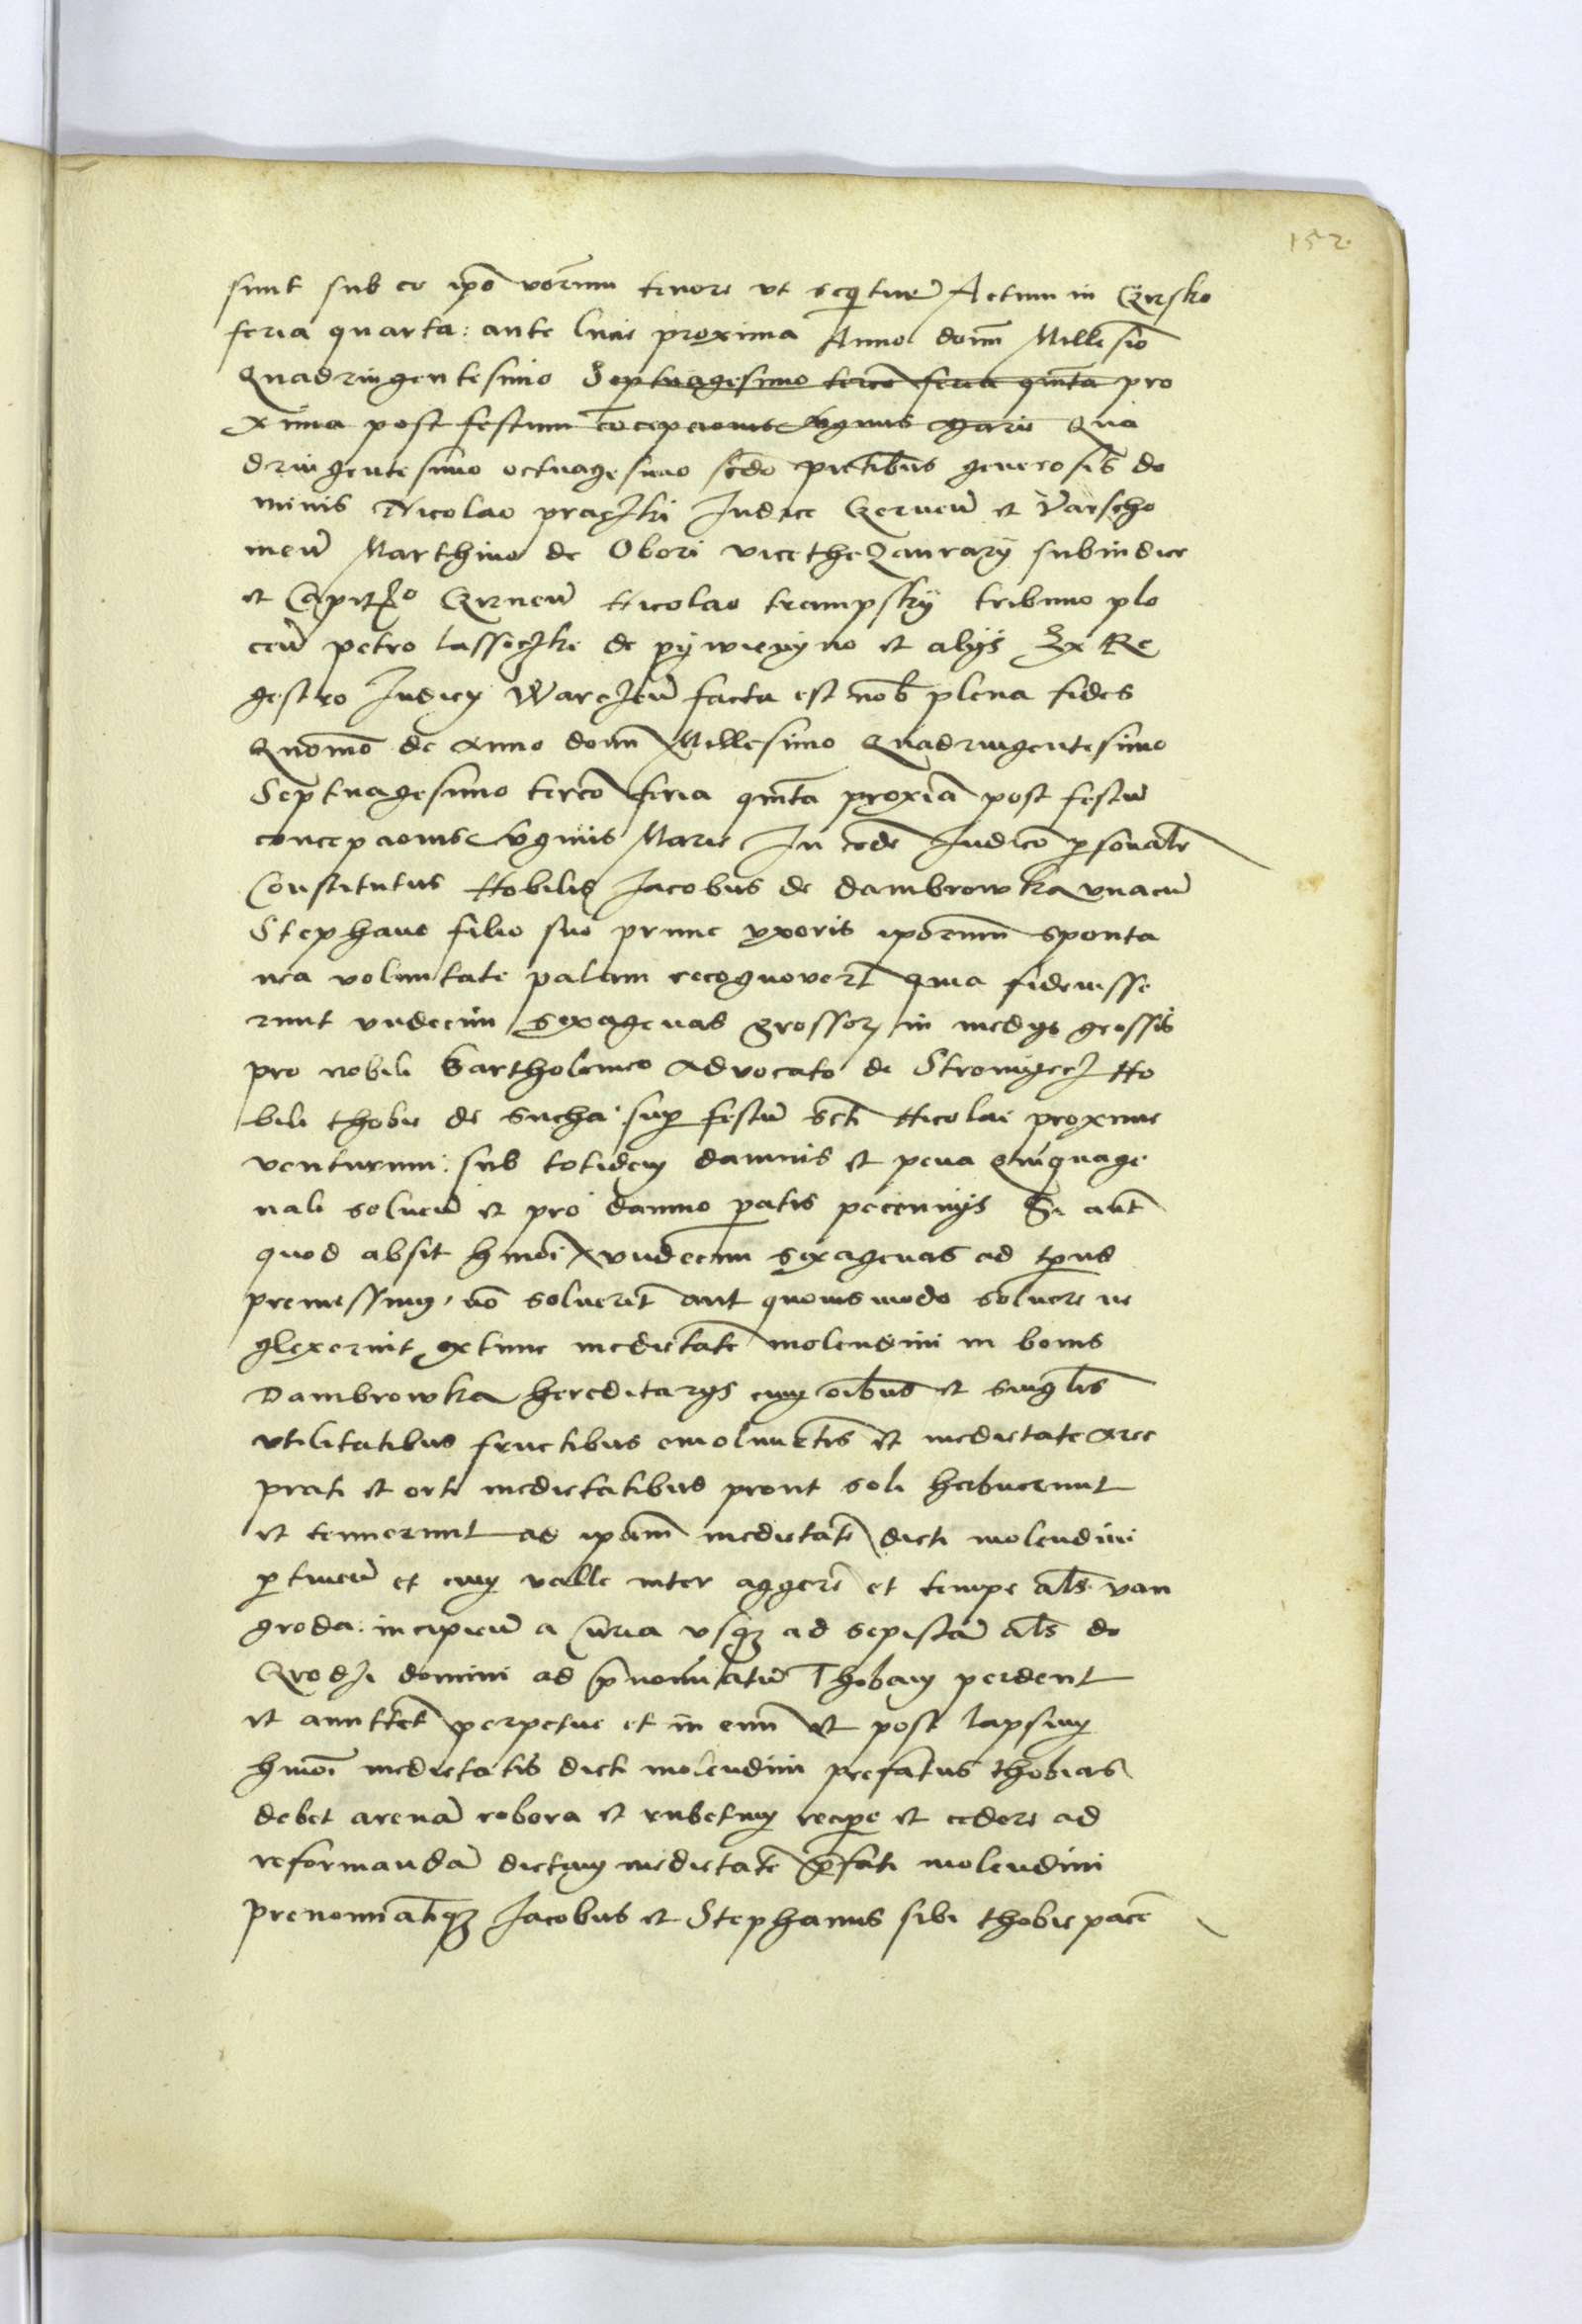 152
sunt sub eo ipo vorum tenore ut sequitur Actum in Czirsko
feria quarta: ante lucie proxima Anno domi Millesio
Quadringentesimo Septuagesimo tercio feria quinta pro
xima post festum concepcionis virginis Marie Qua
dringentesimo octuagesimo scdo prntibus generosis do
minis Nicolao praczki Judice Czernen et Varscho
uien Marthino de Obori vicethezaurarij subiudice
et Capitneo Czirnen Nicolao trampsky tribuno plo
cen petro lassoczki de pywienyno et alijs Ex Re
gestro Judicy Warczien facta est nob plena fides
Quomo de anno domi Millesimo Quadringentesimo
Septuagesimo tercio feria quinta proxia post festu
concepcionis virginis Marie In eode Judico psonalr
Constitutus Nobilis Jacobus de dambrowka vnacu
Stephano filio suo prime vxoris ipōrum sponta
nea voluntate palam recognovert quia fideiusse
runt vndecim sexagenas grossor in medys grossis
pro nobili Bartholomeo advocato de Stromyecz No
bili thobie de sucha sup festu scti Nicolai proxime
venturum: sub totidem damnis et pena quinquage
nali soluen et pro damno patis pecunnijs Si aut
quod absit hmoi vndecim sexagenas ad tpus
premissum no soluerit aut quouismodo soluere ne
glexerint extunc medietate molendini in bonis
Dambrowka hereditarys cum oibus et singlis
vtilitatibus fructibus emolumetis et medietate aree
prati et orti medietatibus prout soli habuerunt
et tenuerunt ad ipam medietate dicti molendini
ptinen et cum valle inter aggere et tempe als van
groda: incipien a curia vsqz ad sepista als do
Qrodzi domini ad pnominatu Thobiam perdent
et amittet perpetue et in eum et post lapsum
hmoi medietatis dicti molendini prefatus thobias
debet arena robora et rubetum recipe et cedere ad
reformanda dictam medietate pfati molendini
prenominatiqz Jacobus et Stephanus sibi thobie pace